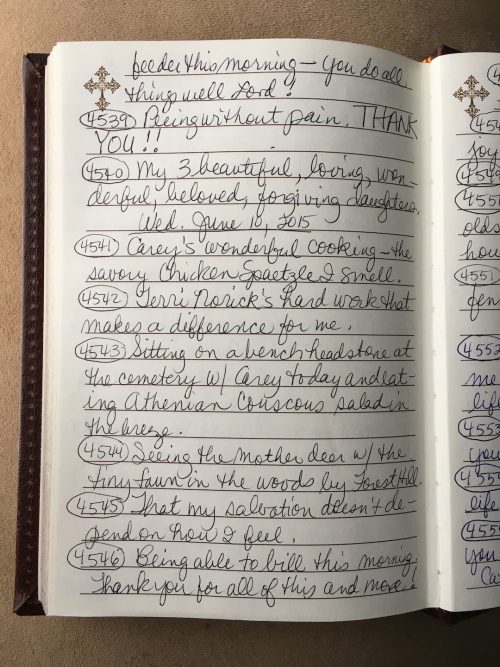 feeder this morning - you do all
things well Lord!
4539 Peeing without pain. THANK
YOU!!
4540 My 3 beautiful, loving, won-
derful, beloved, forgiving daughters.
Wed. June 10, 2015
4541 Carey's wonderful cooking - the
savory Chicken Spaetzle I smell.
4542 Terri Norick's hard work that
makes a difference for me.
4543 Sitting on a bench headstone at
the cemetery w/ Carey today and eat-
ing Athenian Couscous salad in
the breeze.
4544 Seeing the mother deer w/ the
tiny fawn in the woods by Forest Hill.
4545 That my salvation doesn't de-
pend on how I feel.
4546 Being able to bill this morning.
Thank you for all of this and more!
joy
4549
olds
hou
4551
fen
4552
me
life
4553
you
4554
life
4555
you
Ca